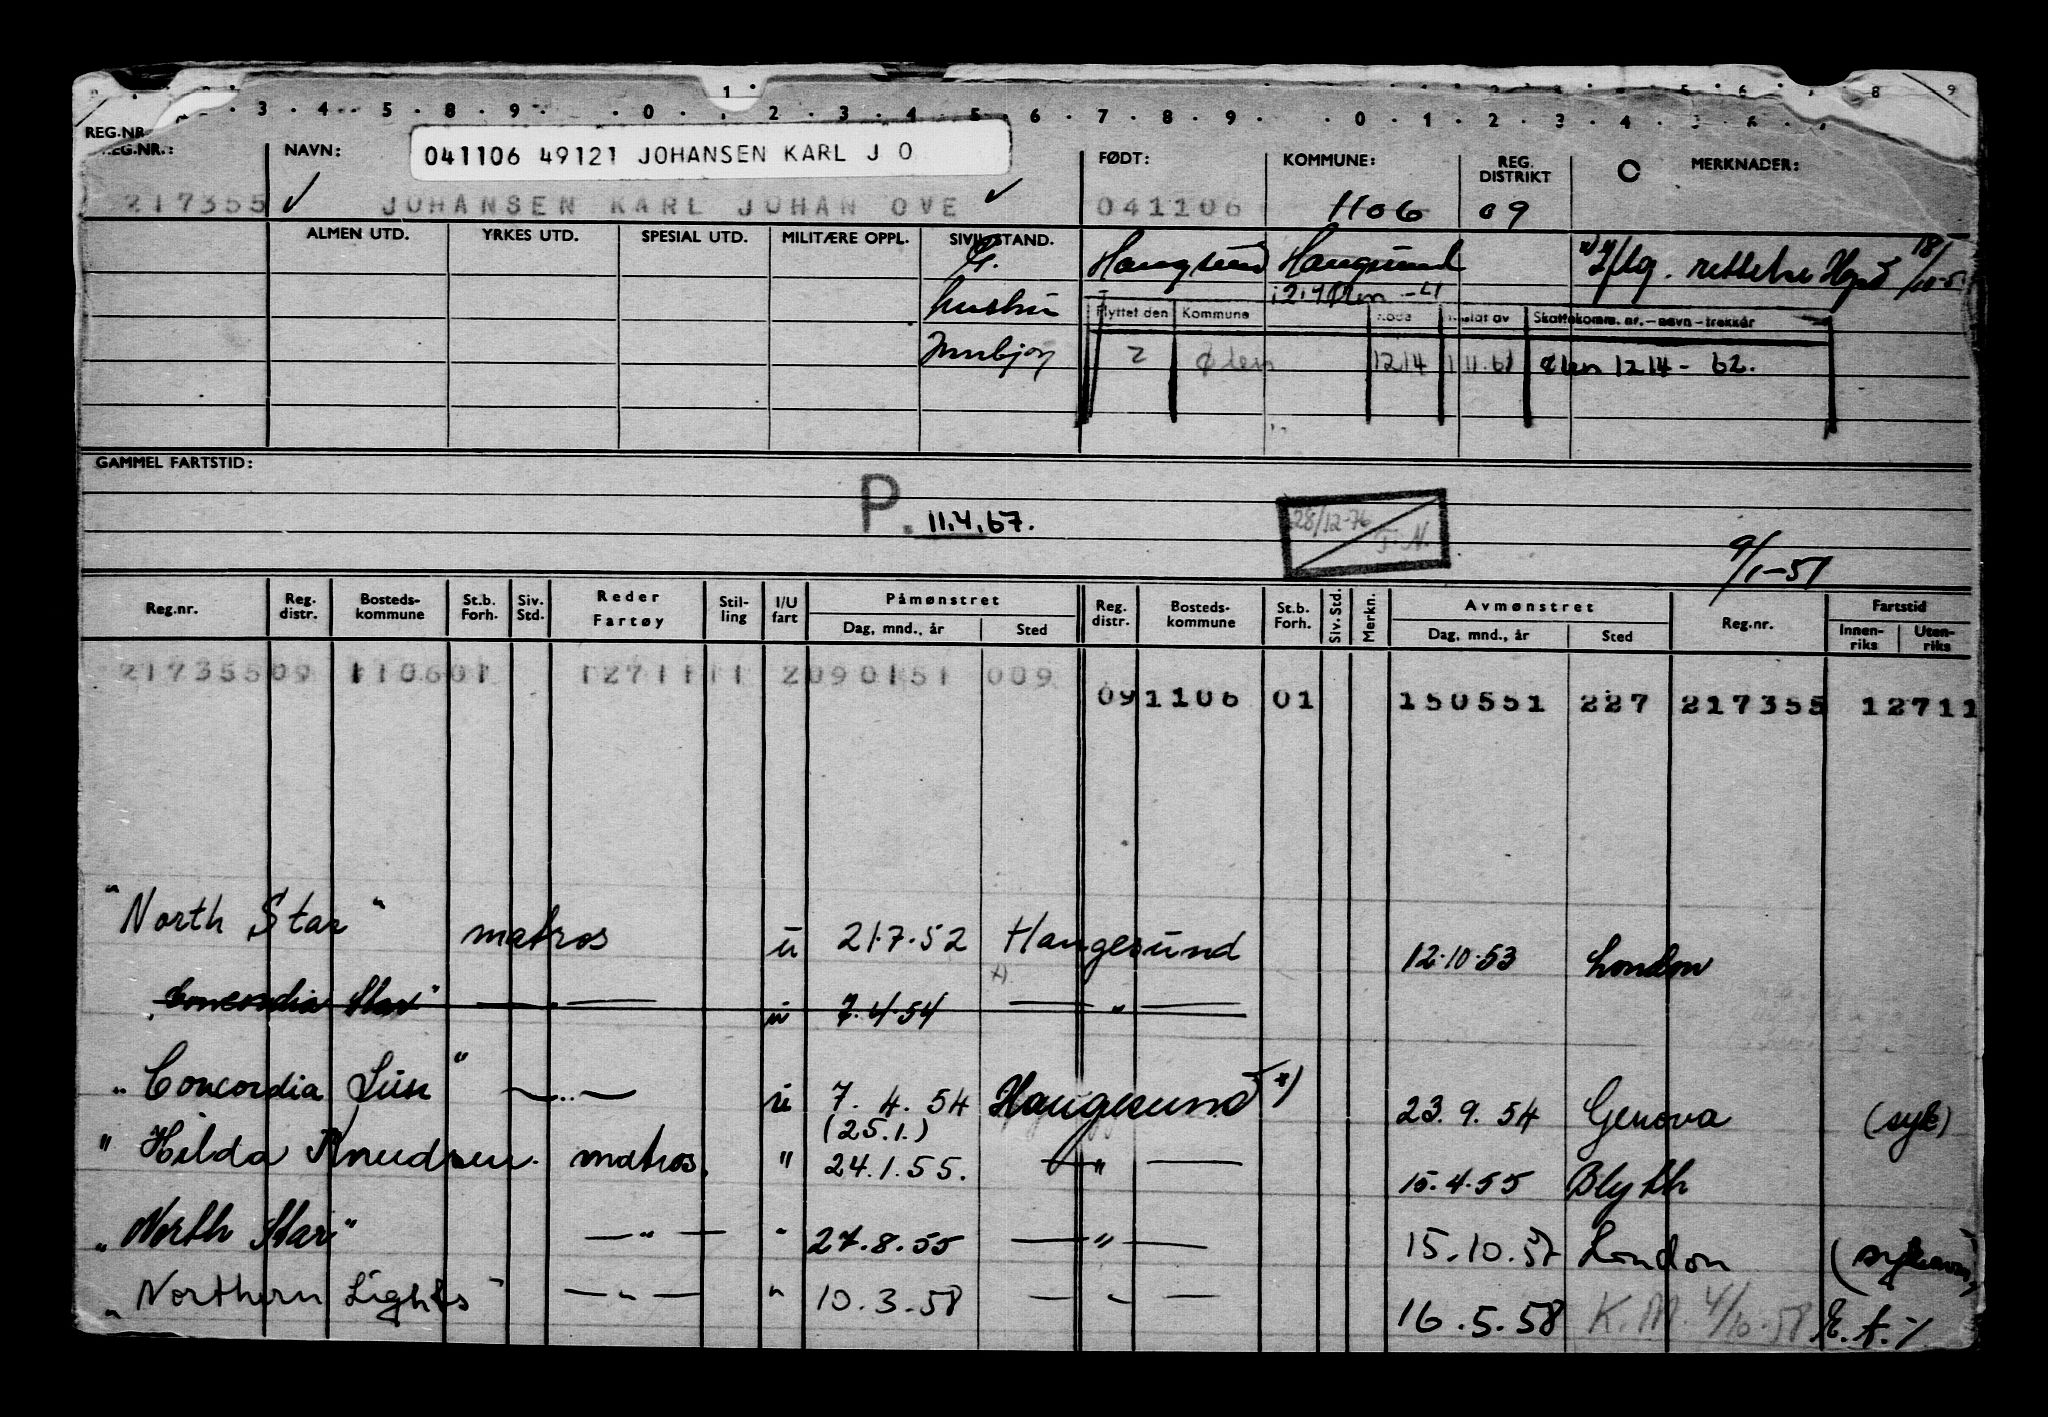 REG.NR.
EG.NR.:
NAVN:
041106 49121 JOHANSEN KARL J O
FØDT:
KOMMUNE:
REG. DISTRIKT
MERKNADER:
217355 JOHANSEN KARL JOHAN OVE 041106 1106 09
ALMEN UTD. YRKES UTD. SPESIAL UTD. MILITÆRE OPPL. SIVILSTAND.
G. Haugesund Haugesund
hustru
Flyttet den Kommune Skattekomm. nr. – navn – trekkår
2 Ølen 1214 1.11.61 Ølen 1214 - 62.
GAMMEL FARTSTID:
P. 11.4.67.
28/12-76
9/1-51
Reg.nr. Reg. distr. Bosteds-kommune St.b. Forh. Siv. Std. Reder Fartøy Stil-ling I/U fart Påmønstret Dag, mnd., år Sted Reg. distr. Bosteds-kommune St.b. Forh. Siv. Std. Merkn. Avmønstret Dag, mnd., år Sted Reg.nr. Fartstid Innen-riks Uten-riks
217355 09 1106 01 127111 1 2 090151 009
09 1106 01 150551 227 217355 12711
"North Star" matros u 21.7.52 Haugesund 12.10.53 London
"Concordia Star" — — u 7.4.54 — " —
"Concordia Sun" — " — u 7.4.54 Haugesund x) 23.9.54 Genova (syk)
(25.1.)
"Hilda Knudsen. matros. " 24.1.55. — " — 15.4.55 Blyth
"North Star" — " — " 27.8.55 — " — 15.10.57 London
"Northern Lights" — " — " 10.3.58 — " — 16.5.58 K.M. 4/10-58